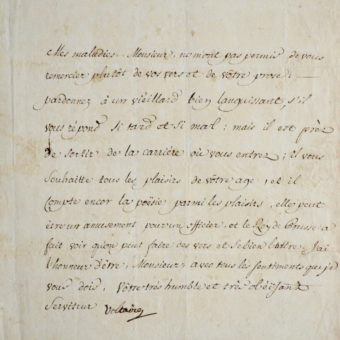 Mes maladies, Monsieur, ne m'ont pas permis de vous
remercier plutôt de vos vers et de vôtre prose;
pardonnez à un vieillard bien languissant, s'il
vous répond si tard et si mal; mais il est prèz
de sortir de la carrière où vous entrez; il vous
souhaitte tous les plaisirs de vôtre age; et il
compte encor la poësie parmi les plaisirs, elle peut
être un amusement pour un officier, et le Roy de Prusse a
fait voir qu'on peut faire des vers et se bien battre. J'ai
l'honneur d'être, Monsieur, avec tous les sentiments que je
vous dois, Vôtre très humble et très obéissant
serviteur Voltaire